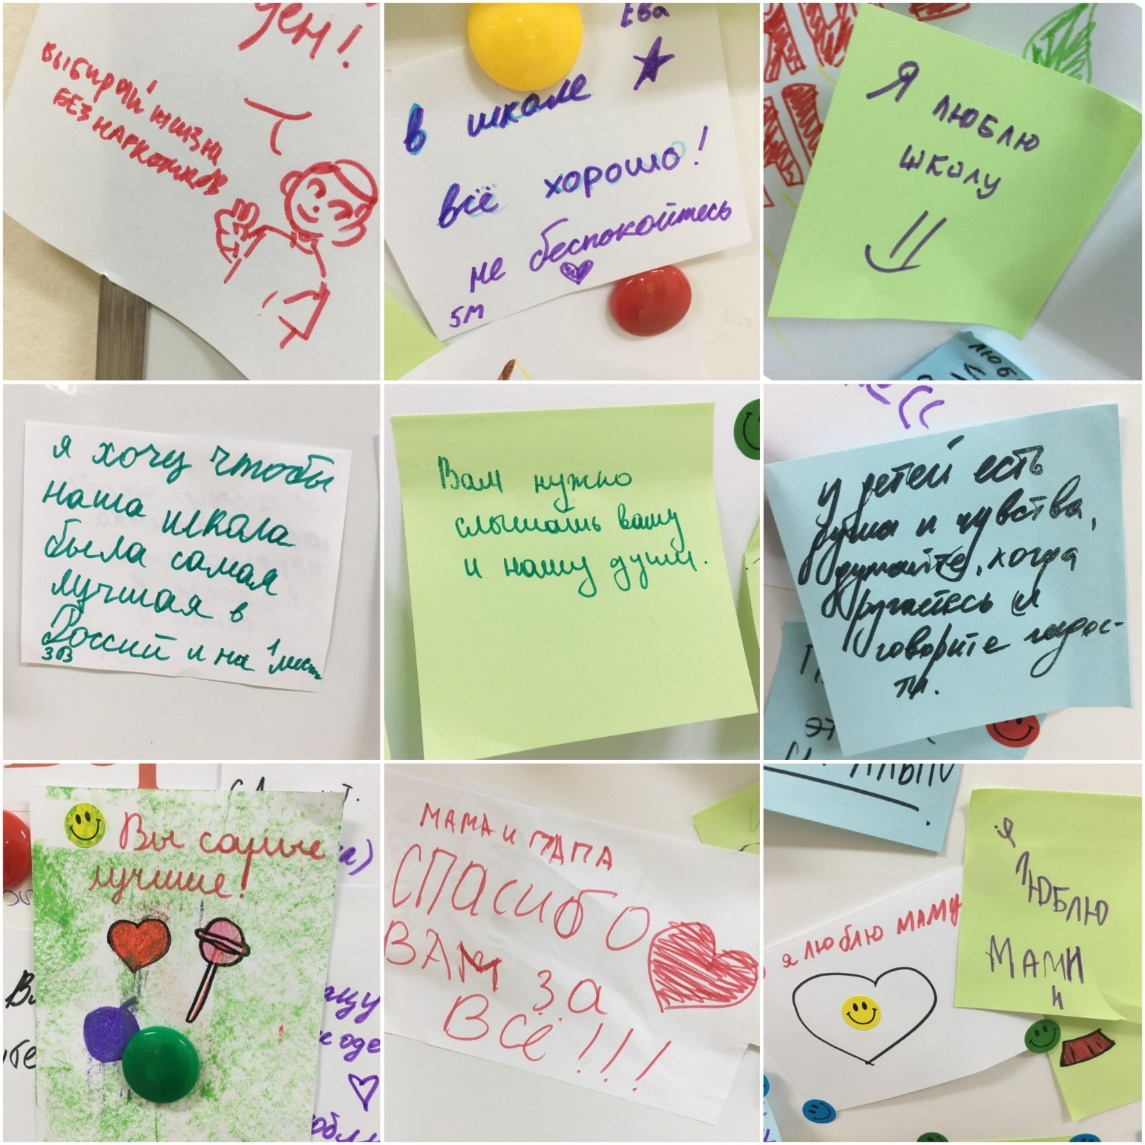 ден!
выбирай жизнь
БЕЗ НАРКОТИКОВ
Ева
в школе
всё хорошо!
не беспокойтесь
5М
Я люблю
школу
люб
я хочу чтобы
наша школа
была самая
лучшая в
Россий и на 1 месте
3в
Вам нужно
слышать вашу
и нашу души.
у детей есть
душа и чувства,
думайте, когда
ругаетесь и
говорите гадос-
ти.
Вы самые
лучшие!
МАМА И ПАПА
СПАСИБО
ВАМ ЗА
Всё!!!
я люблю маму
я
люблю
МАМИ
и